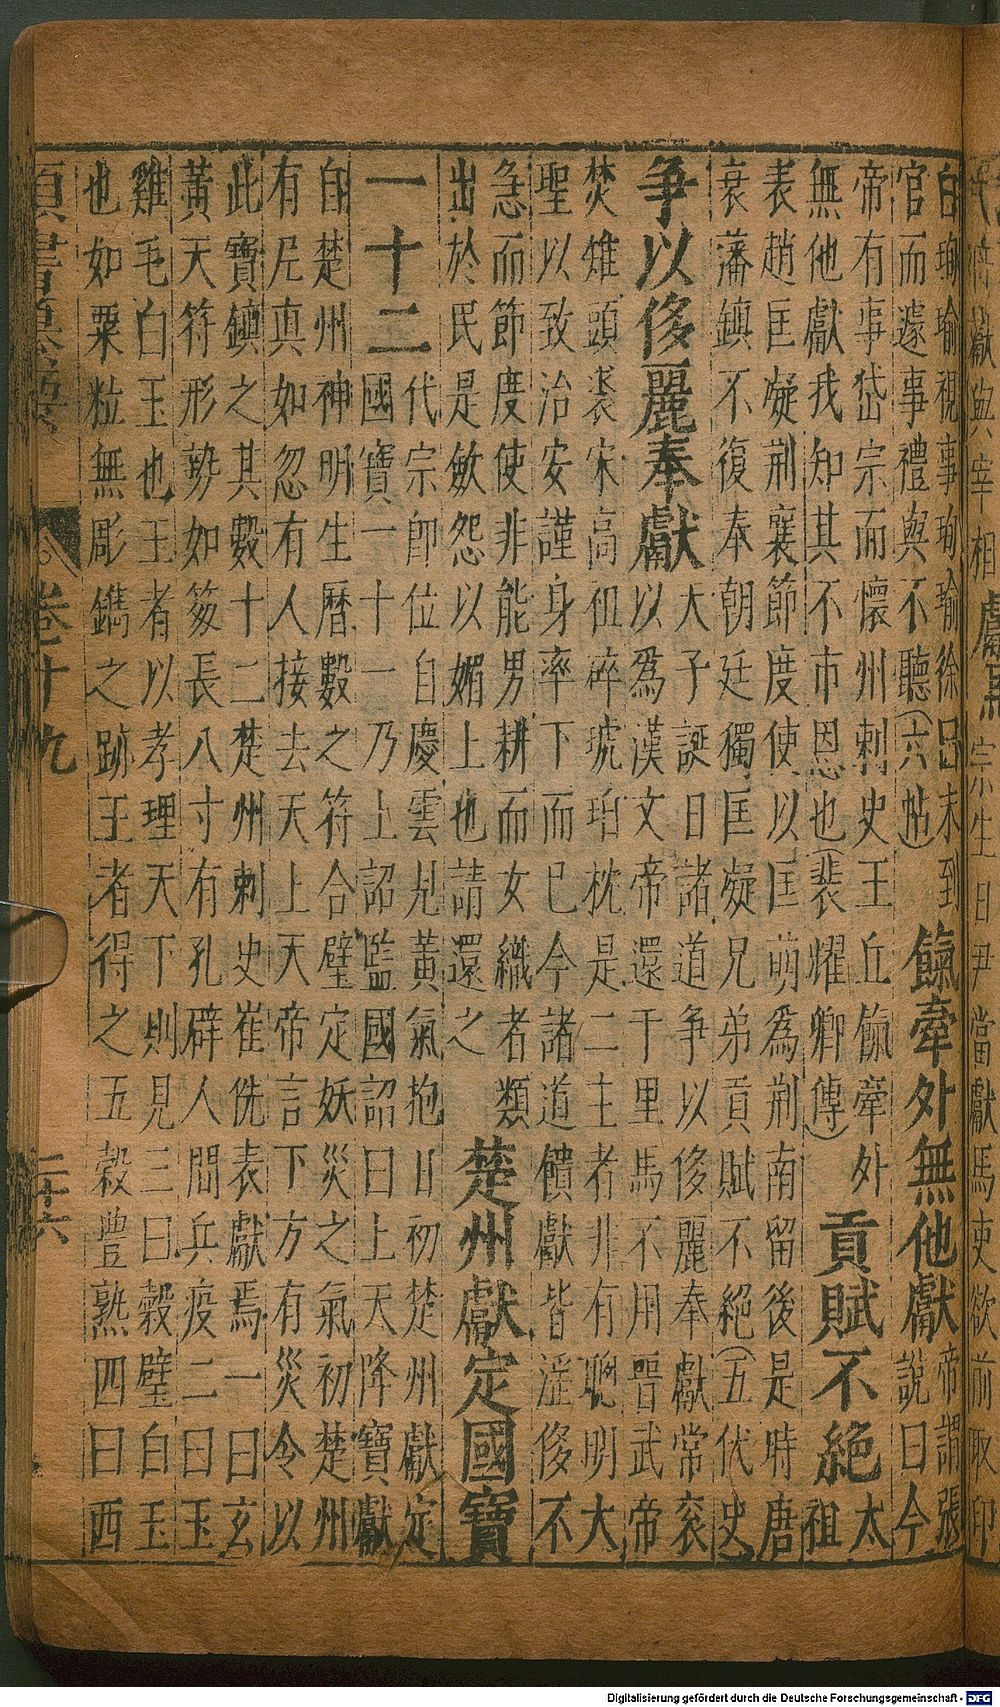 獻與宰相
宗生日尹當獻馬吏欲前取印
白珣瑜視事珣瑜徐曰未到
官而遽事禮與不聽(六帖)
餼牽外無他獻
帝謂張
說曰今
帝有事岱宗而懷州刺史王丘餼牽外
無他獻我知其不市恩也(裴耀卿傳)
貢賦不絕
太
祖
表趙匡凝荊襄節度使以匡萌為荊南留後是時唐
衰藩鎮不復奉朝廷獨匡凝兄弟貢賦不絕(五代史
爭以侈麗奉獻
大子誕日諸道爭以侈麗奉獻常袞
以為漢文帝還千里馬不用晉武帝
焚雉頭裘宋高祖碎琥珀枕是二主者非有聰明大
聖以致治安謹身率下而已今諸道饋獻皆淫侈不
急而節度使非能男耕而女織者類
出於民是斂怨以媚上也請還之
楚州獻定國寶
一十二
代宗即位自慶雲見黃氣抱日初楚州獻定
國寶一十一乃上詔監國詔曰上天降寶獻
自楚州神明生曆數之符合璧定妖災之氣初楚州
有尼真如忽有人接去天上天帝言下方有災令以
此寶鎮之其數十二楚州刺史崔侁表獻焉一曰玄
黃天符形勢如笏長八寸有孔辟人間兵疫二曰玉
雞毛白玉也王者以孝理天下則見三曰穀璧白玉
也如粟粒無彫鐫之跡王者得之五穀豐熟四曰西
卷十九
二十六
Digitalisierung gefördert durch die Deutsche Forschungsgemeinschaft - DFG